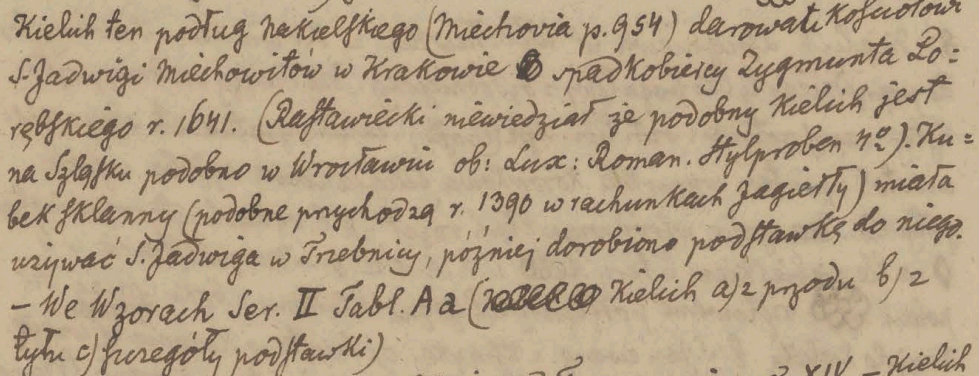 Kielich ten podług Nakielskiego (Miechovia p. 954) darowali Kościołowi
S. Jadwigi Miechowitów w Krakowie spadkobiercy Zygmunta Po=
rębskiego r. 1641. (Rastawiecki niewiedział że podobny Kielich jest
na Szląsku podobno w Wrocławiu ob: Lux: Roman. Stylproben 4º). Ku=
bek sklanny (podobne przychodzą r. 1390 w rachunkach Jagiełły) miała
używać S. Jadwiga w Trzebnicy, później dorobiono podstawkę do niego.
– We Wzorach Ser. II Tabl. A a ( Kielich a) z przodu b) z
tyłu c) szczegóły podstawki)
XIV – Kielich